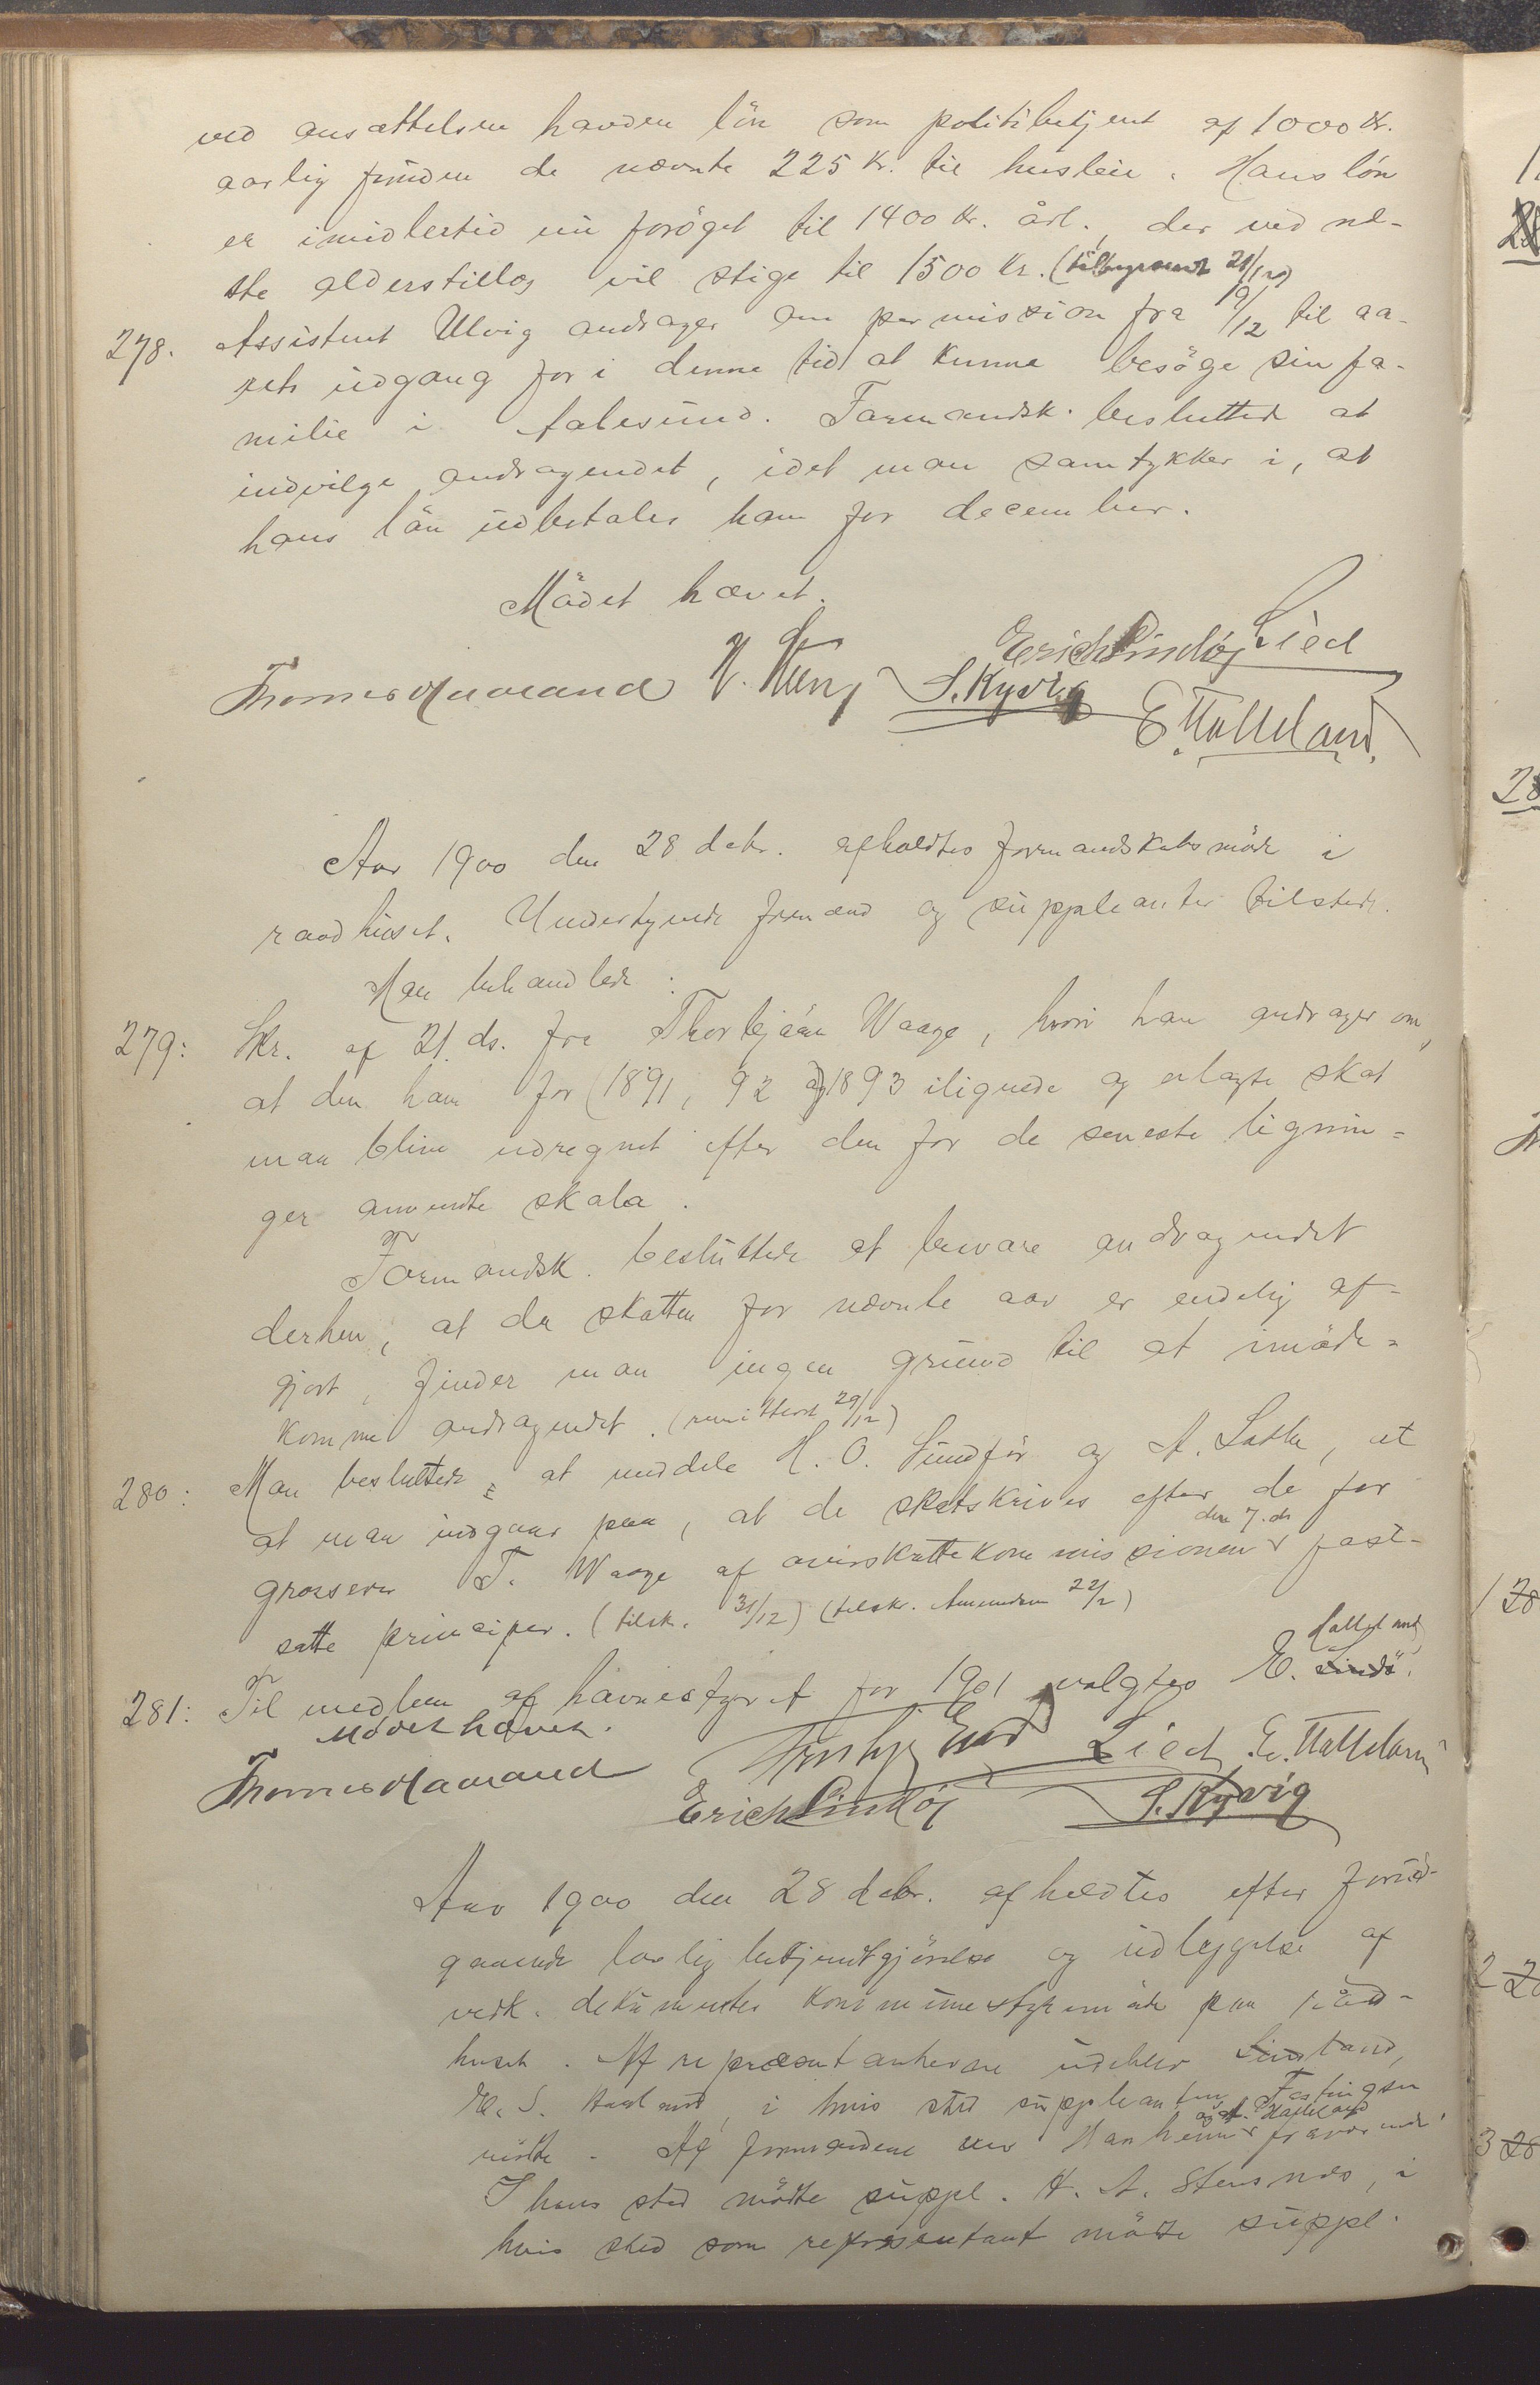 ved ansættelsen havden lön som politibetjent af 1000 kr.
aarlig foruden de nævnte 225 kr. til husleie. Hans lön
er imidlertid nu foröget til 1400 kr. årl., der ved næ-
ste alderstillæg vil stige til 1500 kr. (21/12)
278. Assistent Ulvig andrager om permission fra 19/12 til aa-
rets udgang for i denne tid at kunne besöge sin fa-
milie i Aalesund. Formandsk. besluttede at
indvilge andragendet, idet man samtykker i, at
hans lön udbetales ham for december.
Mödet hævet.
Erich Lindöe Lied
Thomas Haaland S. Kyvig
E. Hatteland.
Aar 1900 den 28 debr. afholdtes formandskabsmöde i
raadhuset. Undertegnede formænd og suppleanter tilstede.
Man behandlede:
279: Skr. af 21. ds. fra Thorbjörn Waage, hvori han andrager om,
at den ham for 1891, 92 og 1893 ilignede og erlagte skat
maa blive udregnet efter den for de seneste lignin=
ger anvendte skala.
Formandsk. besluttede at besvare andragendet
derhen, at da skatten for nævnte aar er endelig af-
gjort, finder man ingen grund til at imöde=
komme andragendet. (remitteret 29/12)
280: Man besluttede at meddele H. O. Sundför og A. Løthe, at
at man indgaar paa, at de skatskrives efter de for
grosserer T. Waage af overskattekommissionen den 7. ds fast-
satte principer. (tilsk. 31/12) (tilskr. 22/2)
281: Til medlem af havnestyret for 1901 valgtes E. Lindö. Hatteland
Mödet hævet.
Thomas Haaland Lied E. Hatteland
Erich Lindöe S. Kyvig
Aar 1900 den 28 debr. afholdtes efter forud-
gaaende lovlig bekjendtgjörelse og udlæggelse af
vedk. dokumenter kommunestyremöde paa raad-
huset. Af repræsentanterne udeblev
E. S. i hvis sted suppleanten Fastingsen
og A. Hatteland
mödte. Af formændene var fraværende
I hans sted mödte suppl. H. A. Stensnes, i
hvis sted som repræsentant mödte suppl.